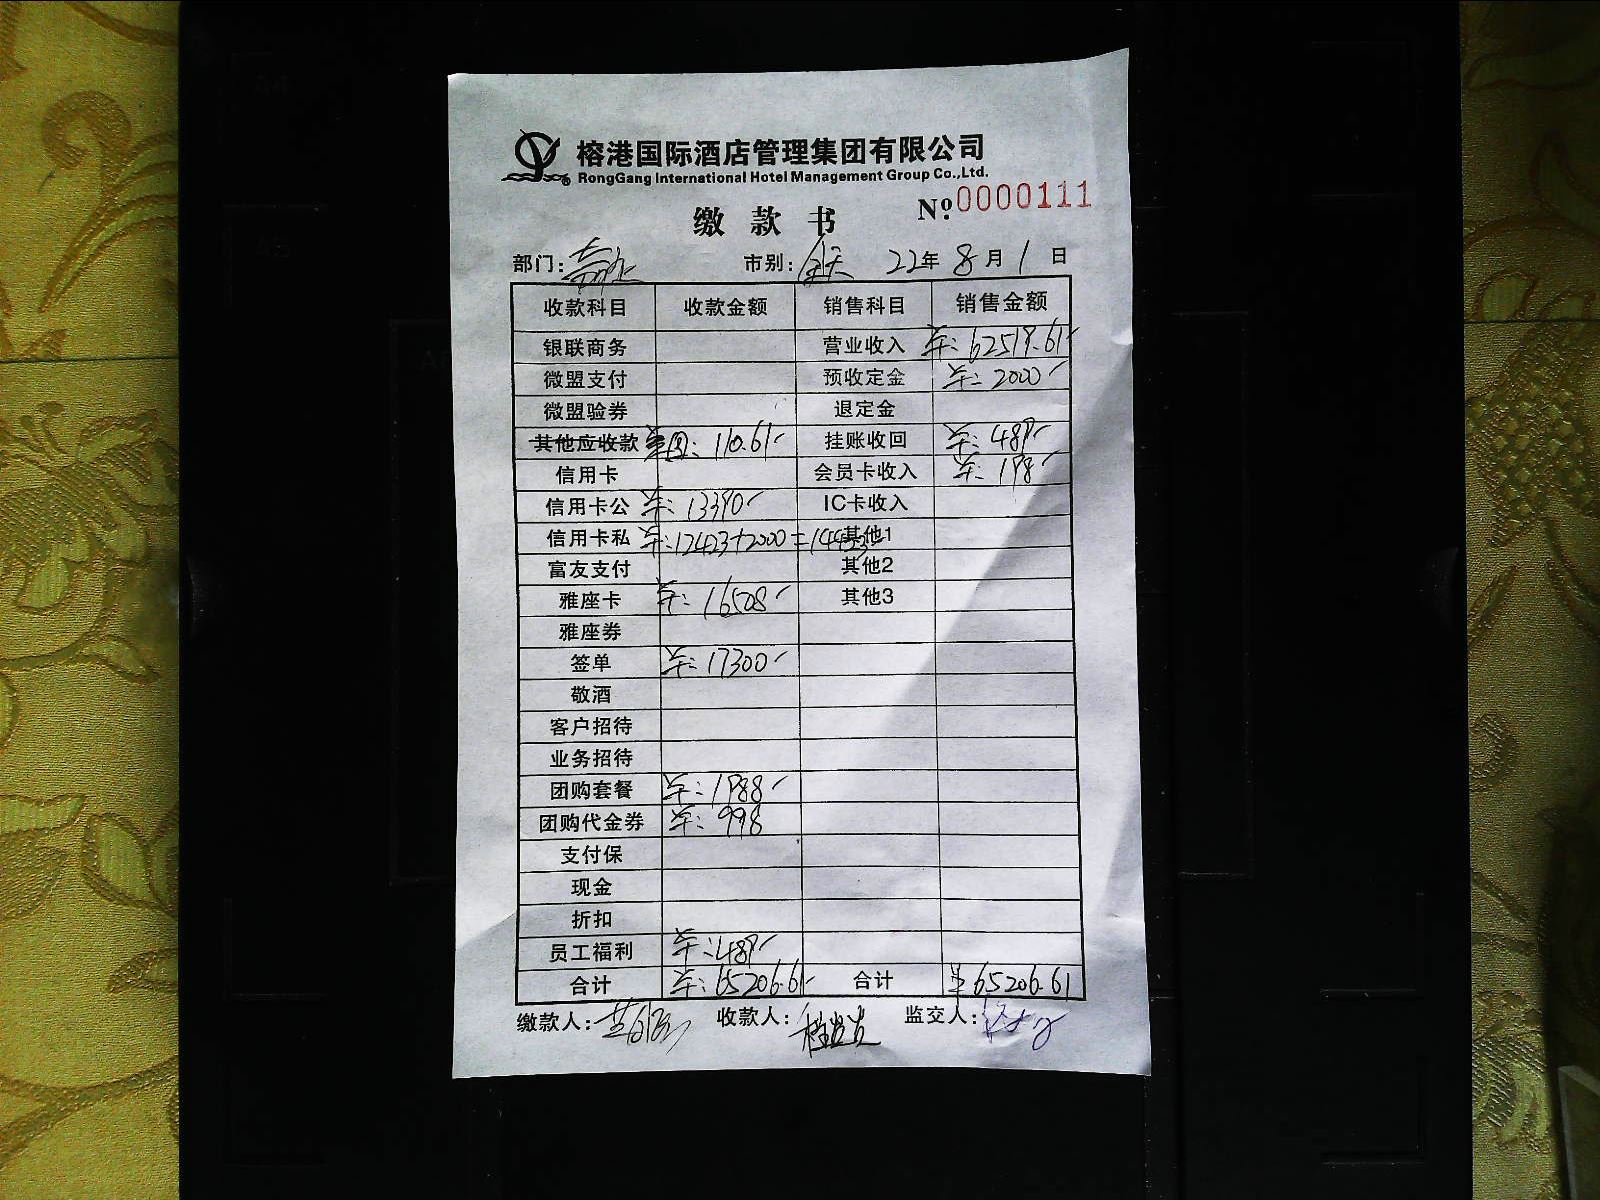 榕港国际酒店管理集团有限公司
RongGang International Hotel Management Group Co.,Ltd.
缴款书 №0000111
部门: 市别:全天 22年8月1日
收款科目 收款金额 销售科目 销售金额
银联商务 营业收入 卡:62519.61
微盟支付 预收定金 卡:2000
微盟验券 退定金
其他应收款 110.61 挂账收回 卡:489
信用卡 会员卡收入 卡:198
信用卡公 卡:13390 IC卡收入
信用卡私 卡:12423+2000=14423 其他1
富友支付 其他2
雅座卡 卡:16508 其他3
雅座券
签单 卡:17300
敬酒
客户招待
业务招待
团购套餐 卡:1988
团购代金券 卡:998
支付保
现金
折扣
员工福利 卡:489
合计 卡:65206.61 合计 65206.61
缴款人: 收款人: 监交人: